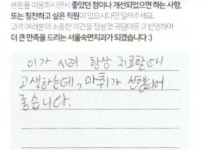 본원을 이용하시면서 좋았던 점이나 개선되었으면 하는 사항,
또는 칭찬하고 싶은 직원이 있으시다면 알려주세요.
고객 여러분의 소중한 의견을 귀담아 듣고 반영하여
더 큰 만족을 드리는 서울숲면치과가 되겠습니다 :)
이가 시려 항상 치료할때
고생하는데, 마취가 선행되어
좋습니다.